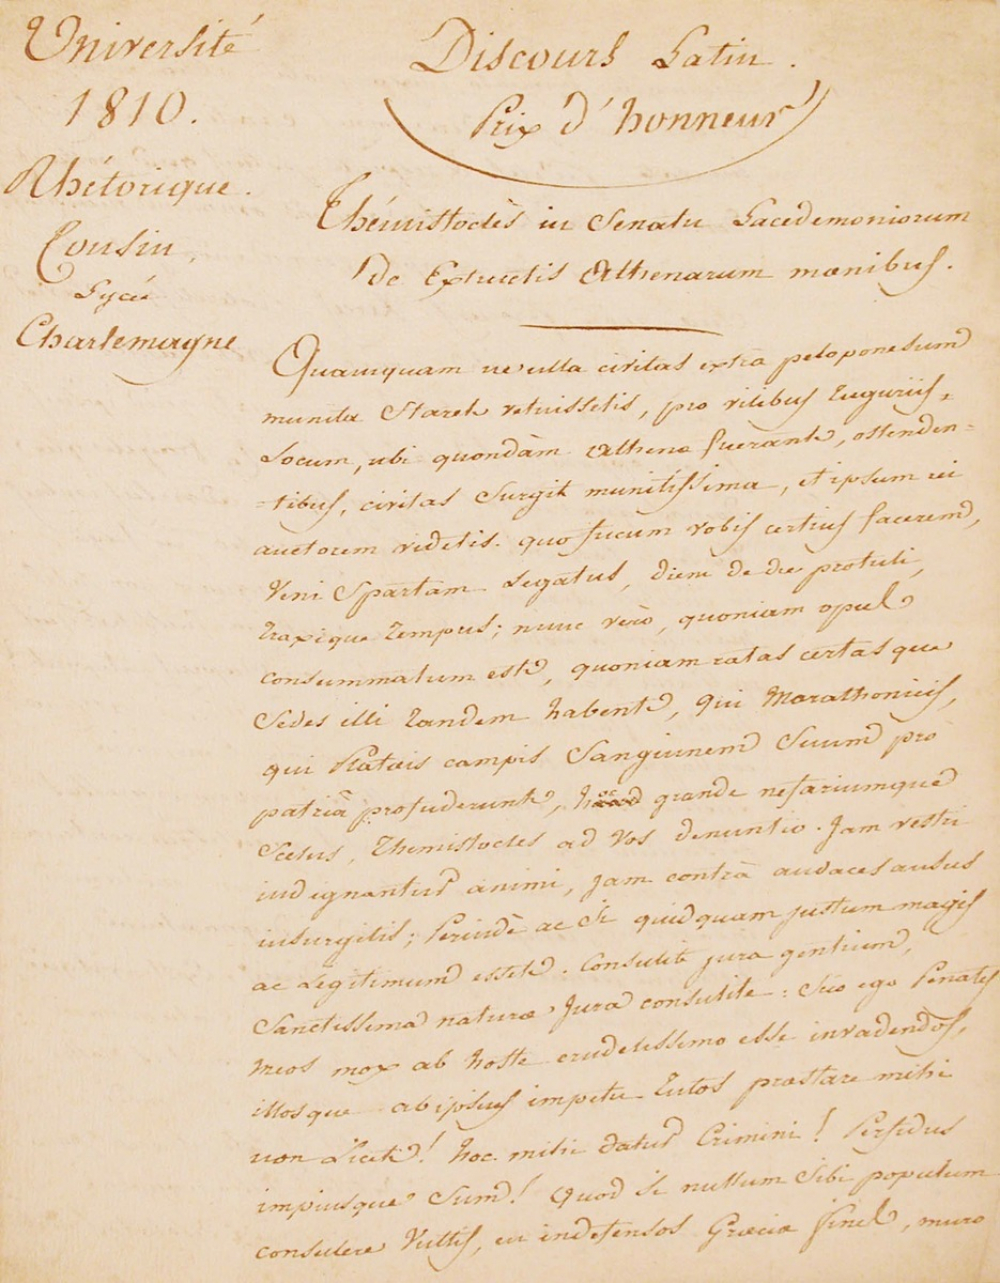 Université
1810.
Rhétorique.
Cousin,
Lycée
Charlemagne
Discours Latin.
Prix d'honneur
Thémistoclès in Senatu Lacedemoniorum
de Extructis Athenarum mœnibus.
Quamquam ne ulla civitas extrà peloponesum
munita Staret vetuissetis, pro vilibus tuguriis,
Locum, ubi quondàm Athenæ fuerant, ostenden=
=tibus, civitas Surgit munitissima, et ipsum rei
auctorem videtis. quo fucum vobis certius facerem,
Veni Spartam Legatus, diem de die protuli,
traxique tempus; nunc verò, quoniam opus
consummatum est, quoniam ratas certasque
Sedes illi tandem habent, qui Marathoniis,
qui Platæis campis Sanguinem Suum pro
patriâ profuderunt, hoc grande nefariumque
Scelus, Themistocles ad Vos denuntio. Jam vestri
indignantur animi, jam contrà audaces ausus
insurgitis; Perindè ac Si quidquam justum magis
ac Legitimum esset. Consulite jura gentium,
Sanctissima naturæ Jura consulite: Sic ego Penates
Meos mox ab hoste crudelissimo esse invadendos,
illosque ab ipsius impetu tutos præstare mihi
non Licet! hoc mihi datur Crimini! Perfidus
impiusque Sum! Quod Si nullum Sibi populum
consulere Vultis, cur indefensos Græciæ fines, muro